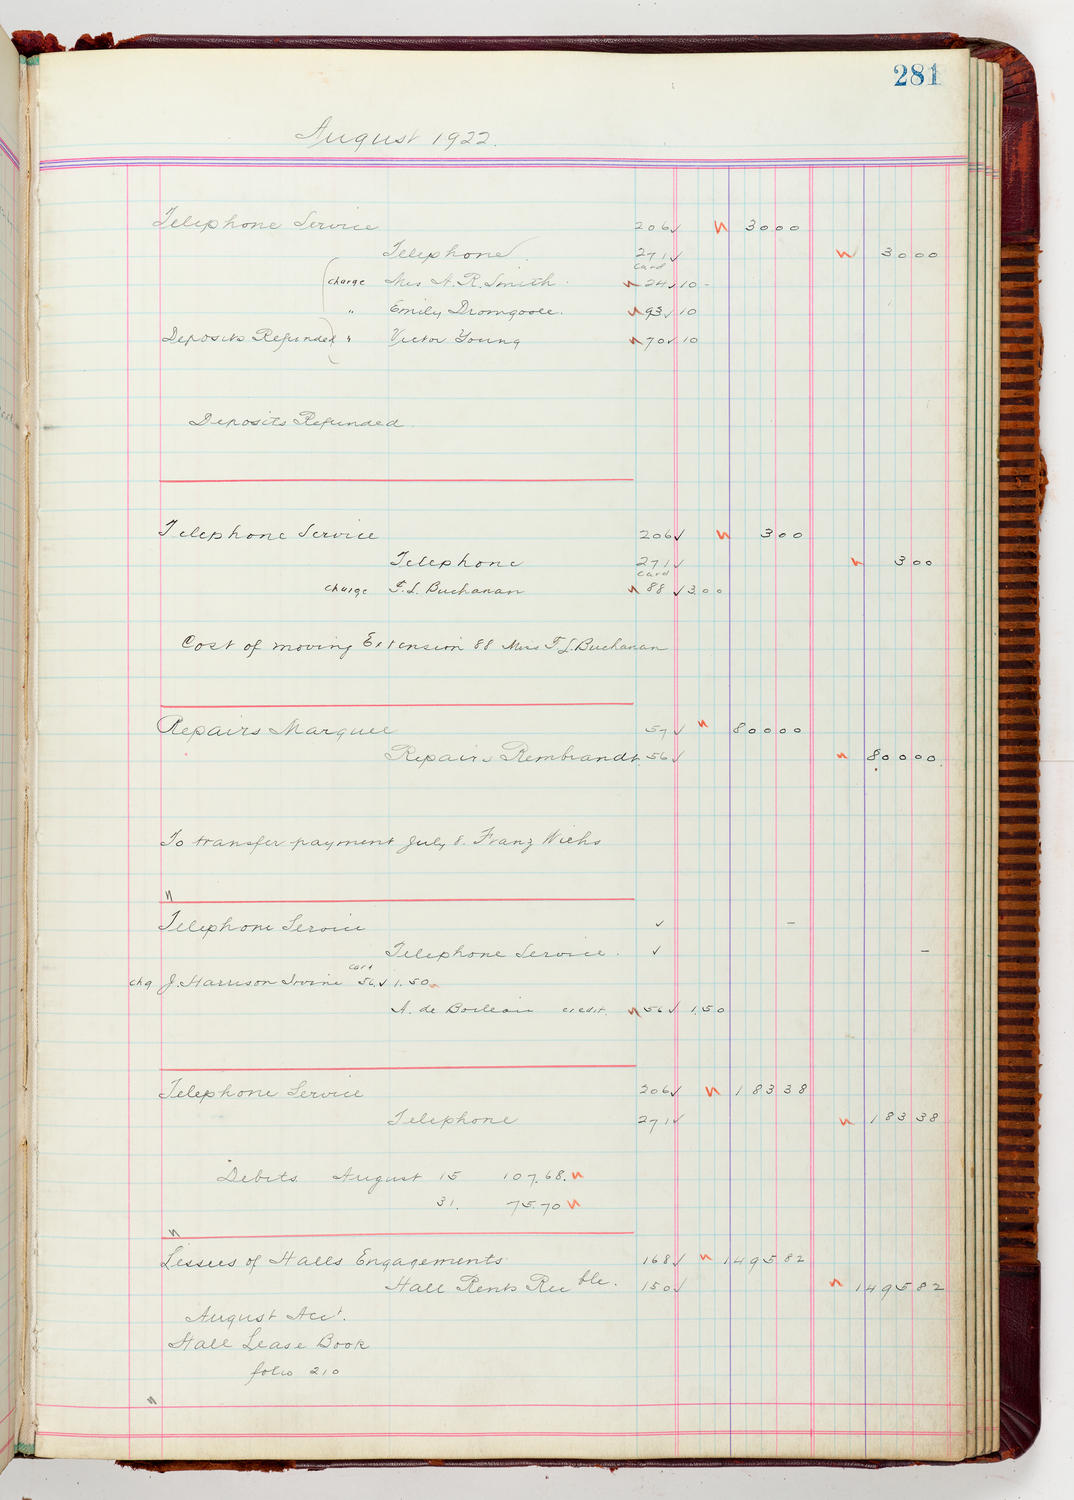 281
August 1922.
Telephone Service 206✓ 30 00
Telephone 271✓ 30 00
card
charge Mrs H. R. Smith 24✓ 10 -
" Emily Dromgoole. 93✓ 10
Deposits Refunded " Victor Young 70✓ 10
Deposits Refunded.
Telephone Service 206✓ 3 00
Telephone 271✓ 3 00
card
charge F. L. Buchanan 88 ✓ 3.00
Cost of moving Extension 88 Miss F L. Buchanan
Repairs Marquee 57✓ 800 00
Repairs Rembrandt. 56✓ 800 00
To transfer payment July 8. Franz
Telephone Service ✓ –
Telephone Service. ✓ –
card
chg J. Harrison Irvine 56✓ 1.50
A. de credit. 56✓ 1.50
Telephone Service 206✓ 183 38
Telephone 271✓ 183 38
Debits August 15 107.68.
31. 75.70
Lessees of Halls Engagements 168✓ 1495 82
Hall Rents Rec'ble. 150✓ 1495 82
August Acct.
Hall Lease Book
folio 210